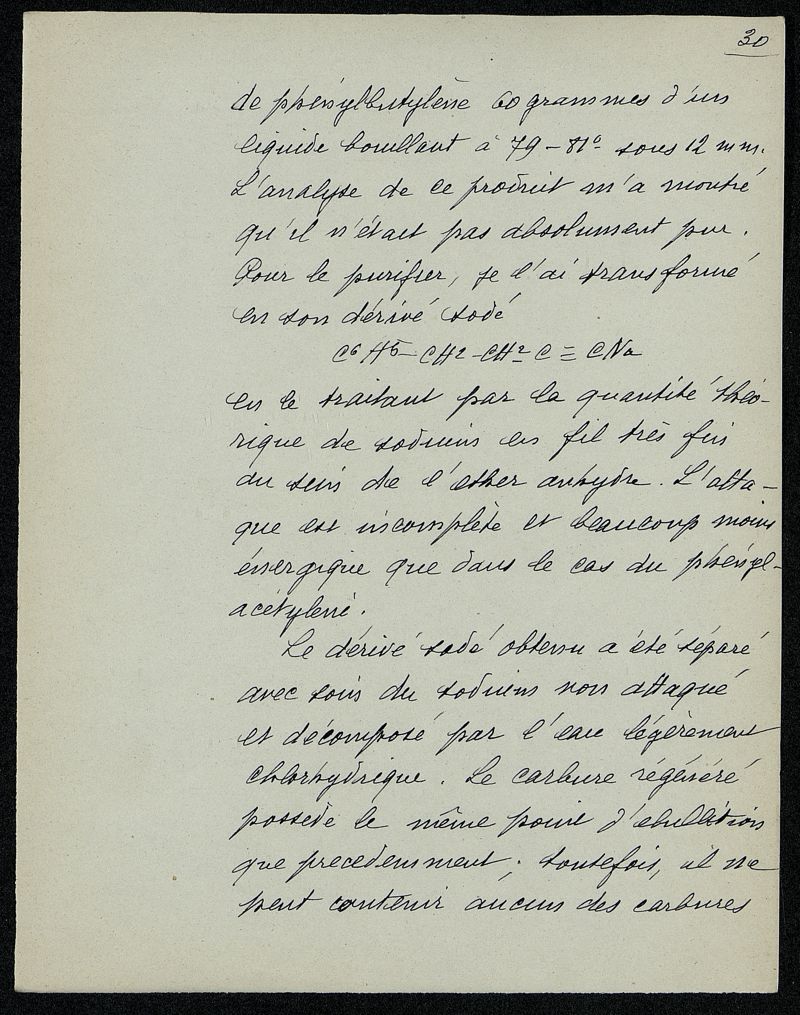 30
de phénylbutylène 60 grammes d'un
liquide bouillant à 79-81° sous 12 mm.
L'analyse de ce produit m'a montré
qu'il n'était pas absolument pur.
Pour le purifier, je l'ai transformé
en son dérivé sodé
C6H5-CH2-CH2-C≡CNa
en le traitant par la quantité théo-
rique de sodium en fil très fin
au sein de l'ether anhydre. L'atta-
que est incomplète et beaucoup moins
énergique que dans le cas du phényl-
acétylène.
Le dérivé sodé obtenu a été séparé
avec soin du sodium non attaqué
et décomposé par l'eau légèrement
chlorhydrique. Le carbure régénéré
possède le même point d'ebullition
que precedemment; toutefois, il ne
peut contenir aucun des carbures